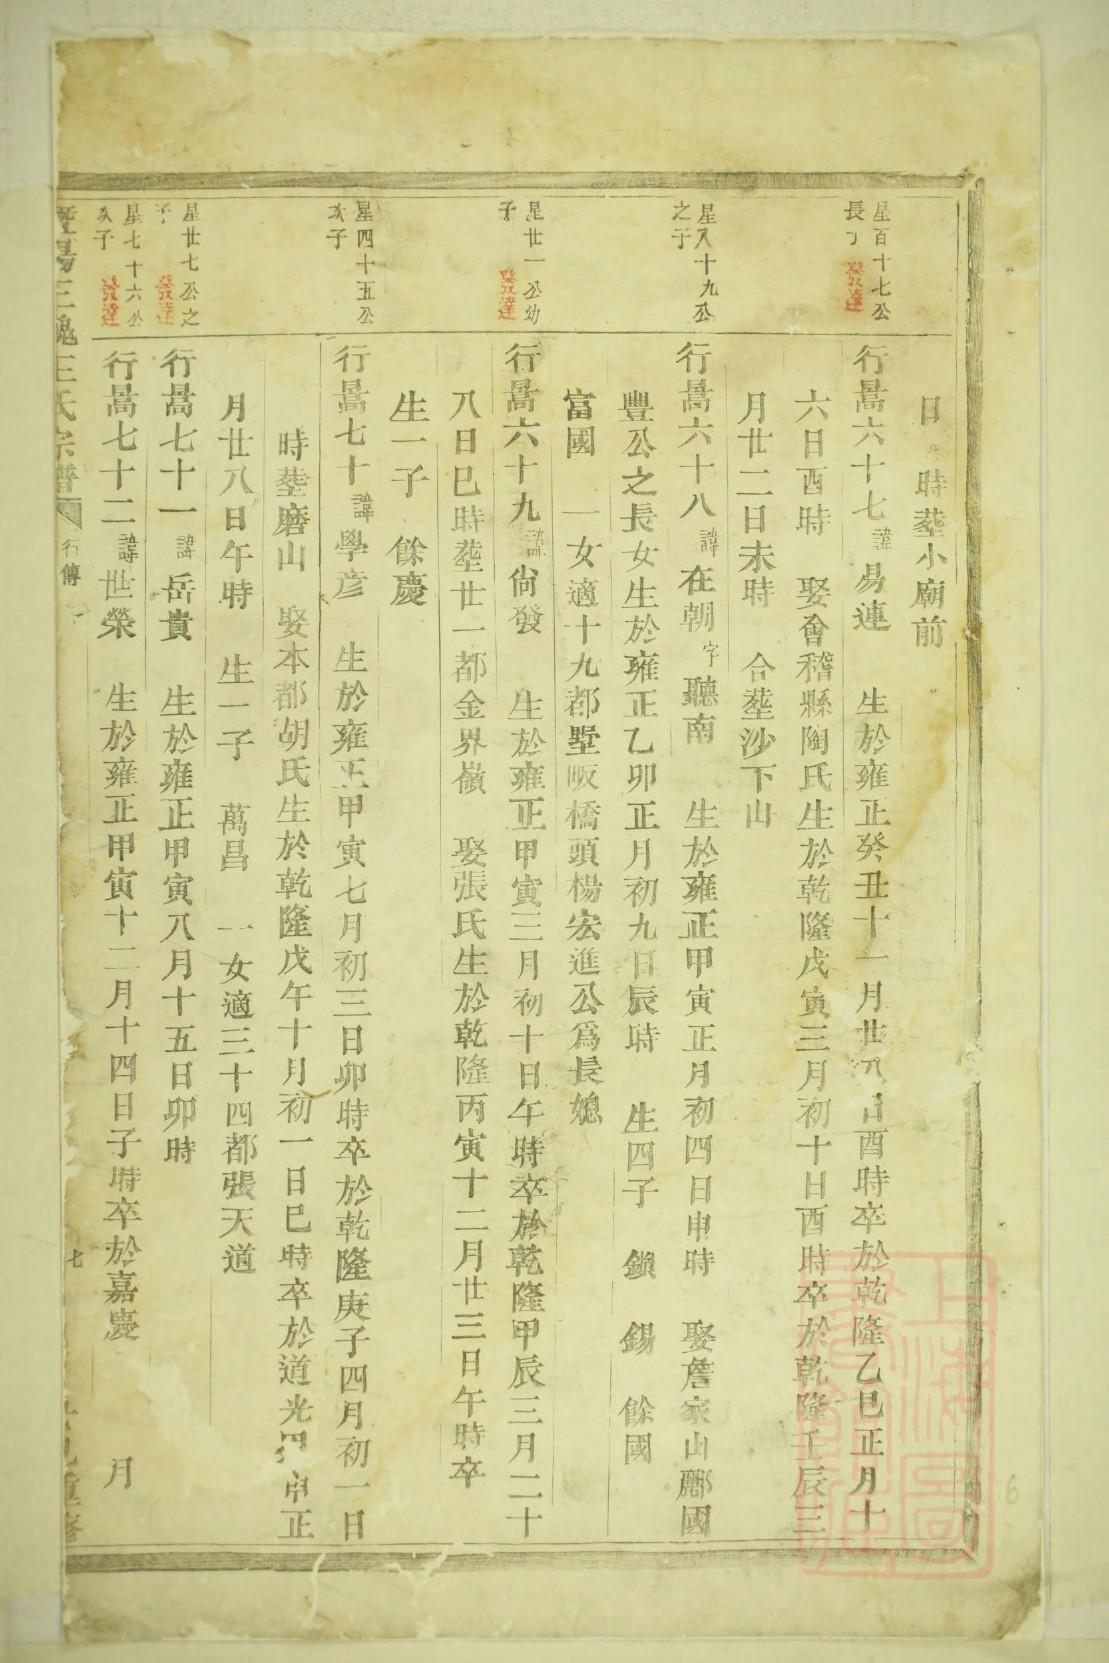 日　時塟小廟前
星百十七公
長子
發達
行暠六十七諱易連　生於雍正癸丑十一月廿八日酉時卒於乾隆乙巳正月十
六日酉時　娶會稽縣陶氏生於乾隆戊寅三月初十日酉時卒於乾隆壬辰三
月廿二日未時　合塟沙下山
星八十九公
之子
行暠六十八諱在朝字聽南　生於雍正甲寅正月初四日申時　娶詹家山酈國
豐公之長女生於雍正乙卯正月初九日辰時　生四子　鎖　錫　餘國
富國　一女適十九都墅畈橋頭楊宏進公爲長媳
星廿一公幼
子
發達
行暠六十九諱尙發　生於雍正甲寅三月初十日午時卒於乾隆甲辰三月二十
八日巳時塟廿一都金界嶺　娶張氏生於乾隆丙寅十二月廿三日午時卒
生一子　餘慶
星四十五公
次子
行暠七十諱學彦　生於雍正甲寅七月初三日卯時卒於乾隆庚子四月初一日
時塟磨山　娶本都胡氏生於乾隆戊午十月初一日巳時卒於道光四申正
月廿八日午時　生一子　萬昌　一女適三十四都張天道
星廿七公之
子
發達
行暠七十一諱岳貴　生於雍正甲寅八月十五日卯時
星七十六公
次子
發達
行暠七十二諱世榮　生於雍正甲寅十二月十四日子時卒於嘉慶　月
暨陽三槐王氏宗譜　行傳　七　重修
上海圖書館藏
6